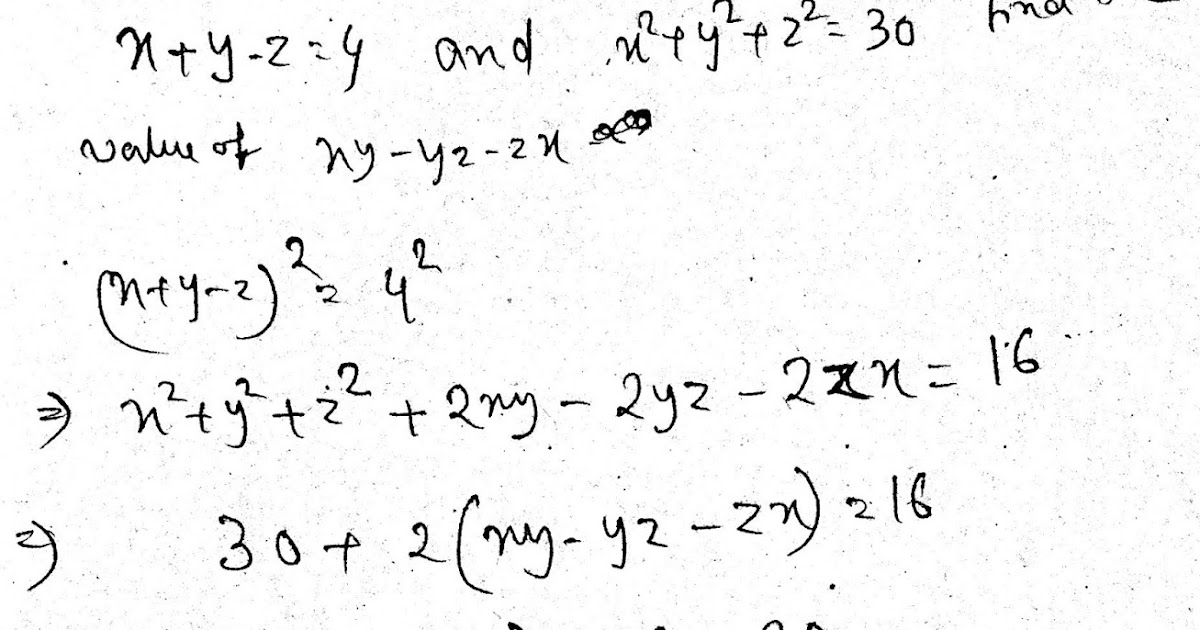 x+y-z=4 and x²+y²+z²=30 find
value of xy-yz-zx
(x+y-z)²= 4²
⇒ x²+y²+z²+2xy-2yz-2zx=16
⇒ 30+2(xy-yz-zx)=16